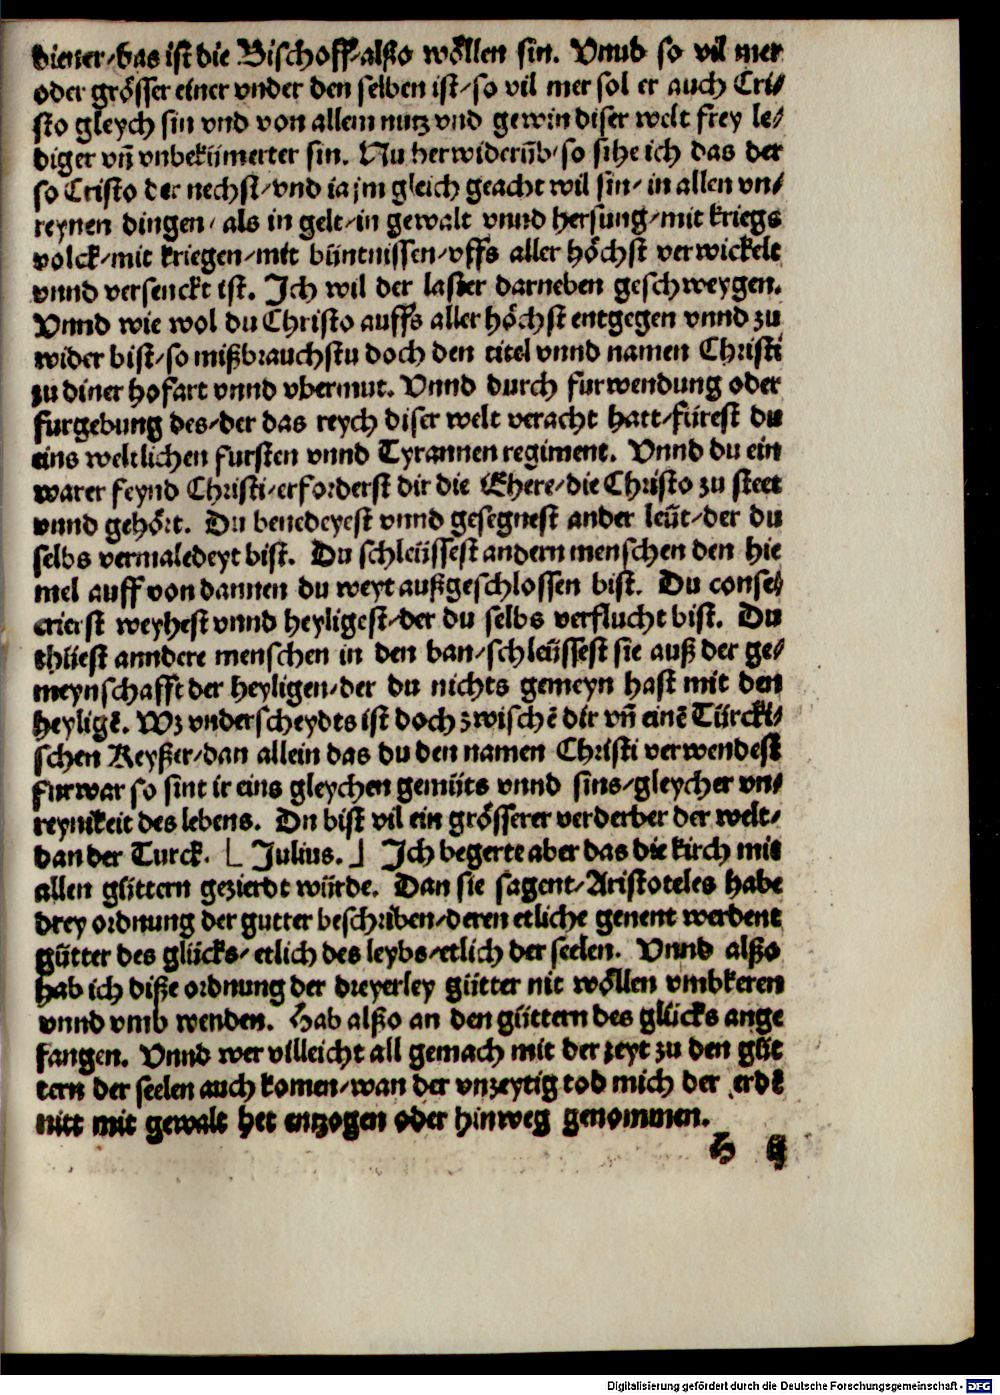 diener/das ist die Bischoff/alßo wöllen sin. Vnnd so vil mer
oder grösser einer vnder den selben ist/so vil mer sol er auch Cri/
sto gleych sin vnd von allem nutz vnd gewin diser welt frey le/
diger vñ vnbekümerter sin. Nu herwiderũb/so sihe ich das der
so Cristo der nechst/vnd ia jm gleich geacht wil sin/in allen vn/
reynen dingen/als in gelt/in gewalt vnnd hersung/mit kriegs
volck/mit kriegen/mit büntnissen/vffs aller höchst verwickelt
vnnd versenckt ist. Ich wil der laster darneben geschweygen.
Vnnd wie wol du Christo auffs aller höchst entgegen vnnd zu
wider bist/so mißbrauchstu doch den titel vnnd namen Christi
zu diner hofart vnnd vbermut. Vnnd durch furwendung oder
furgebung des/der das reych diser welt veracht hatt/fürest du
eins weltlichen fursten vnnd Tyrannen regiment. Vnnd du ein
warer feynd Christi/erforderst dir die Ehere/die Christo zu steet
vnnd gehört. Du benedeyest vnnd gesegnest ander leüt/der du
selbs vermaledeyt bist. Du schleüssest andern menschen den hie
mel auff von dannen du weyt außgeschlossen bist. Du conse/
crierst weyhest vnnd heyligest/der du selbs verflucht bist. Du
thüest anndere menschen in den ban/schleüssest sie auß der ge/
meynschafft der heyligen/der du nichts gemeyn hast mit den
heyligẽ. Wz vnderscheydts ist doch zwischẽ dir vñ einẽ Türcki/
schen Keyßer/dan allein das du den namen Christi verwendest
furwar so sint ir eins gleychen gemüts vnnd sins/gleycher vn/
reynikeit des lebens. Du bist vil ein grösserer verderber der welt/
dan der Turck. [ Julius. ] Ich begerte aber das die kirch mit
allen güttern gezierdt würde. Dan sie sagent/Aristoteles habe
drey ordnung der gutter beschriben/deren etliche genent werdent
gütter des glücks/etlich des leybs/etlich der seelen. Vnnd alßo
hab ich diße ordnung der dreyerley gütter nit wöllen vmbkeren
vnnd vmb wenden. Hab alßo an den güttern des glücks ange
fangen. Vnnd wer villeicht all gemach mit der zeyt zu den güt
tern der seelen auch komen/wan der vnzeytig tod mich der erdẽ
nitt mit gewalt het entzogen oder hinweg genommen.
H ij
Digitalisierung gefördert durch die Deutsche Forschungsgemeinschaft - DFG